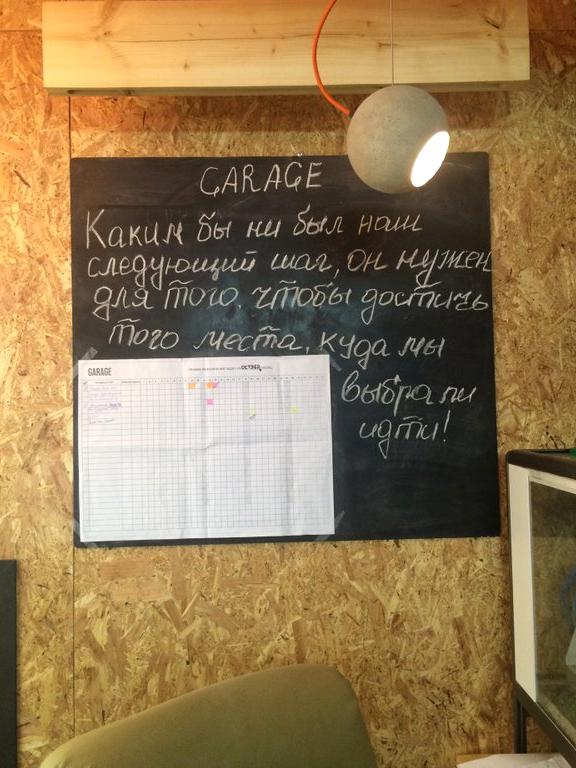 GARAGE
Каким бы ни был наш
следующий шаг, он нужен
для того. чтобы достичь
того места, куда мы
выбрали
идти!
GARAGE
OCTOBER